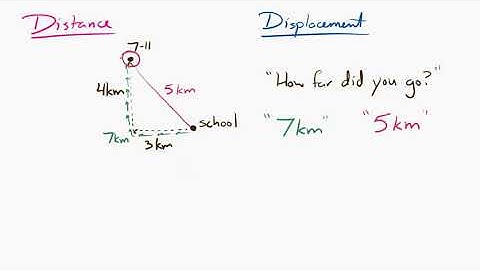 Distance
Displacement
7-11
4km
5km
school
7km
3km
"How far did you go?"
"7km" "5km"